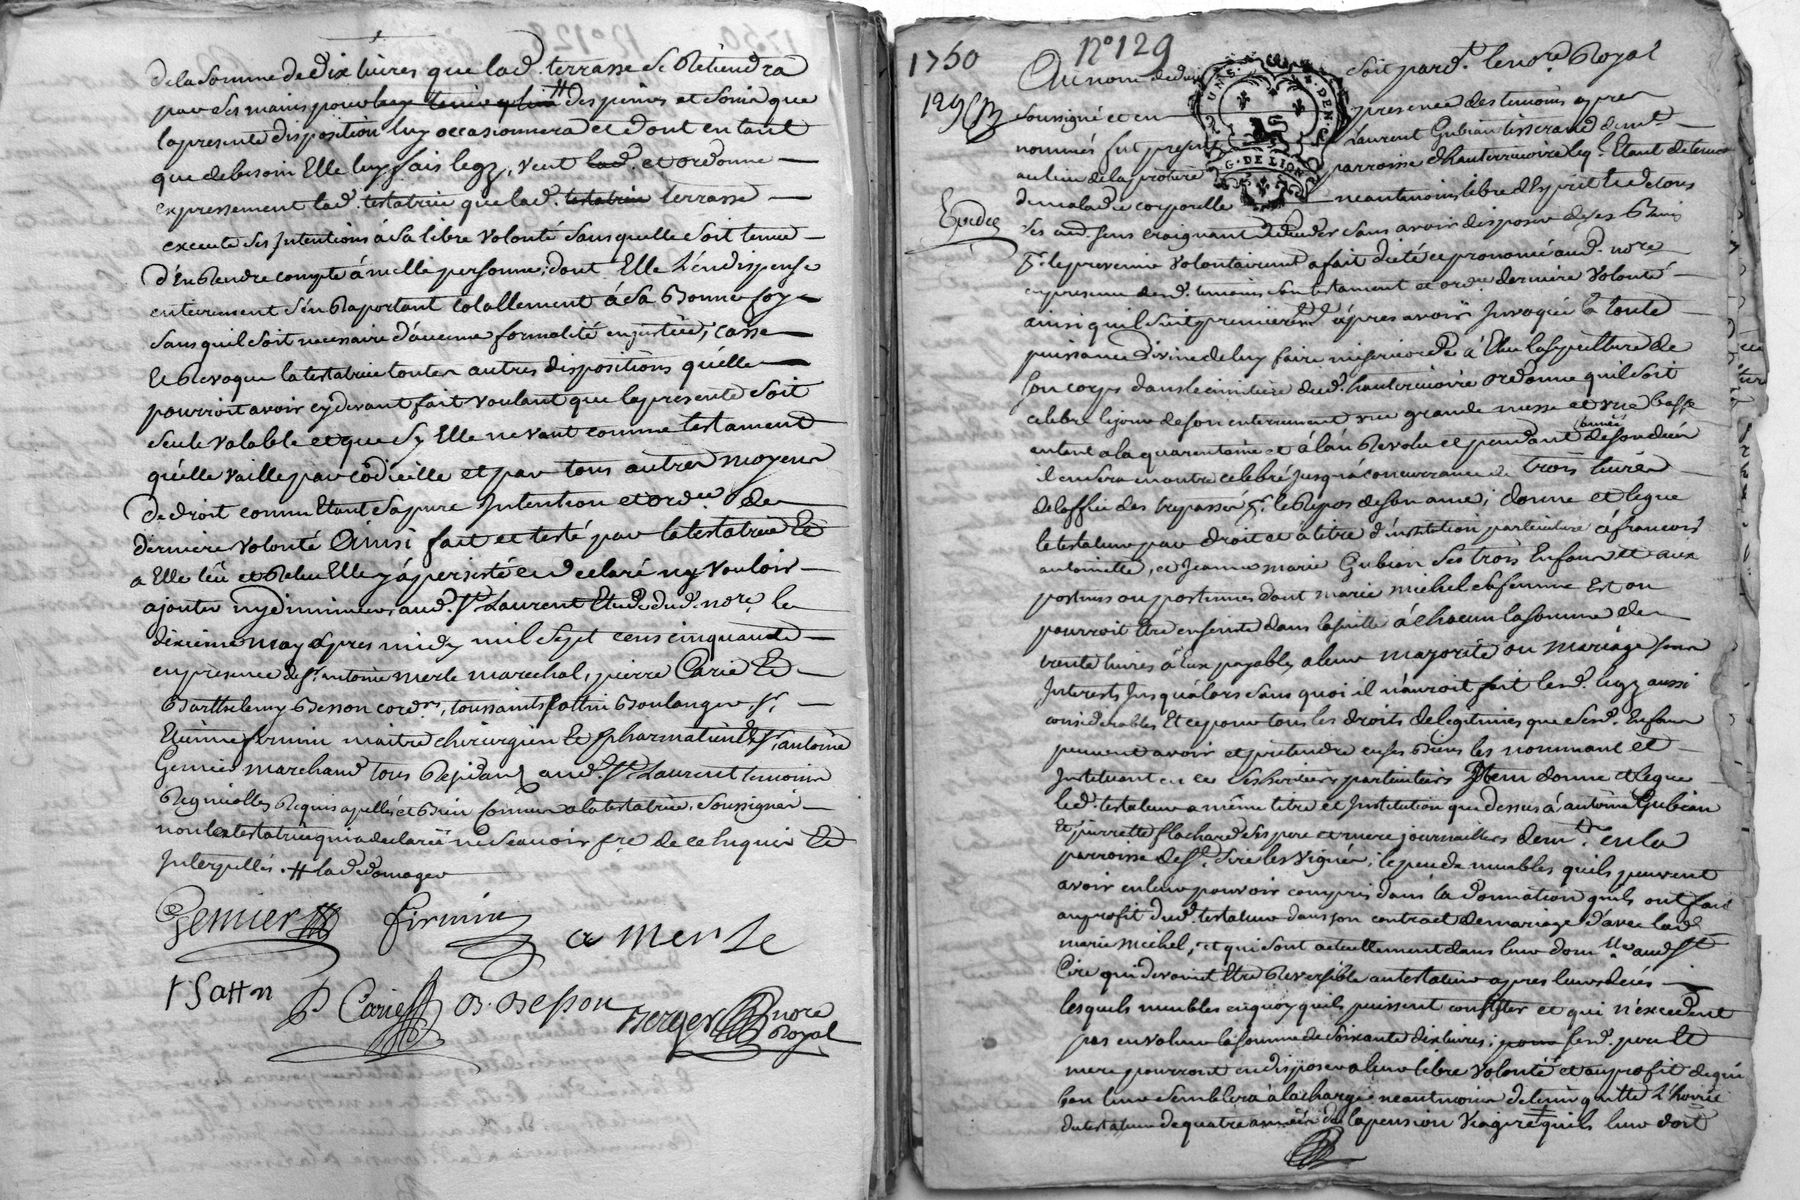 de la somme de dix livres que lad. terrasse se Retiendra
par ses mains pour # des peines et soins que
la presente disposition luy occasionnera et dont en tant
que de besoin Elle luy fais legz, veut lad. et ordonne
expressement lad. testatrice que lad. testatrice terrasse
execute ses Intentions à sa libre volonté sans quelle soit tenue
d'en Rendre compte à nulle personne, dont Elle L'en dispense
entierement s'en Raportant totallement à sa Bonne foy
sans quil soit necessaire d'aucune formalité en justice, casse
Et Revoque la testatrice toutes autres dispositions quelle
pourroit avoir cy devant fait voulant que la presente soit
seule valable et que sy Elle ne vaut comme testament
quelle vaille par codicille et par tous autres moyens
de droit comme Etant sa pure Intention et ordce. de
derniere volonté Ainsi fait et testé par la testatrice Et
a Elle leü et Releu Elle y a persisté et declaré ny vouloir
ajouter ny diminuer, aud. St. Laurent Etude dud. nore. le
dixieme may apres midy mil sept cens cinquante
en presence de sr. antoine merle marechal, pierre Carié Et
Barthelemy Besson cordrs., toussaints fattin Boulanger, sr.
Etienne firmin maitre chirurgien Et pharmatien Et sr. antoine
Gemier marchand tous Residants aud. St. Laurent temoins
Requis apellés et Bien connus a la testatrice, soussignés
non la testatrice qui a declaré ne scavoir fre. de ce Enquise Et
Interpellée. # lad. domages
Gemier firmin a merle
t Sattn P Carié B. Besson Berger nore Royal
1750 N° 129
129
Au nom de dieu soit par d. le nore. Royal
soussigné et en presence des temoins apres
nommés fut present Laurent Gubian tisserand demt.
au lieu de la proturé parroisse d'hauterivoire leq. Etant detenu
de maladie corporelle neantmoins libre d'Esprit Et de tous
ses aud. sens craignant deceder sans avoir disposé de ses Biens
pr. le prevenir volontairement a fait dicté et prononcé aud. nore
en presence desd. temoins son testament et ordce. derniere volonté
ainsi quil suit premieremt. apres avoir Invoqué la toute
puissance divine de luy faire misericorde à Elu la sepulture de
son corps dans le cimitiere dud. hauterivoire ordonne quil soit
celebré le jour de son enterrement une grande messe et une basse
autant a la quarantaine et à lan Revolu et pendant lannée de son deces
il en sera en outre celebré jusqu'a concurrance de trois livres
de loffice des trepassés pr. le Repos de son ame; donne et legue
le testateur par droit et à titre d'institution particuliere à francois
antoinette, et Jeanne marie Gubian ses trois Enfans et aux
postumes ou postumes dont marie michel sa femme Est ou
pourroit être enseinte dans la suitte à chacun la somme de
trente livres à Eux payables a leur majorité ou mariage sans
Interests Jusqu'alors sans quoi il n'auroit fait lesd. legz aussi
considerables Et ce pour tous les droits de legitimes que sesd. Enfans
peuvent avoir et pretendre en ses Biens les nommant et
Instituant en ce ses heritiers particuliers Item donne et legue
led. testateur a même titre et Institution que dessus à antoine Gubian
Et pierrette flachard ses pere et mere journailliers demt. en la
parroisse de St. Cire les vignes, le peu de meubles quils peuvent
avoir en leur pouvoir compris dans la donation quils ont fait
au profit dud. testateur dans son contract de mariage d'avec lad.
marie michel, et qui sont actuellement dans leur domlle. aud. St.
Cire qui devoint Etre Reversible au testateur apres leurs deces
lesquels meubles en quoy quils puissent consister et qui n'excedent
pas en valeur la somme de soixante dix livres; sesd. pere Et
mere pourront en disposer a leur libre volonté et au profit de qui
bon leur semblera à la charge neantmoins de tenir quitte L'hoirie
du testateur de quatre années de la pension viagere quils leur doit